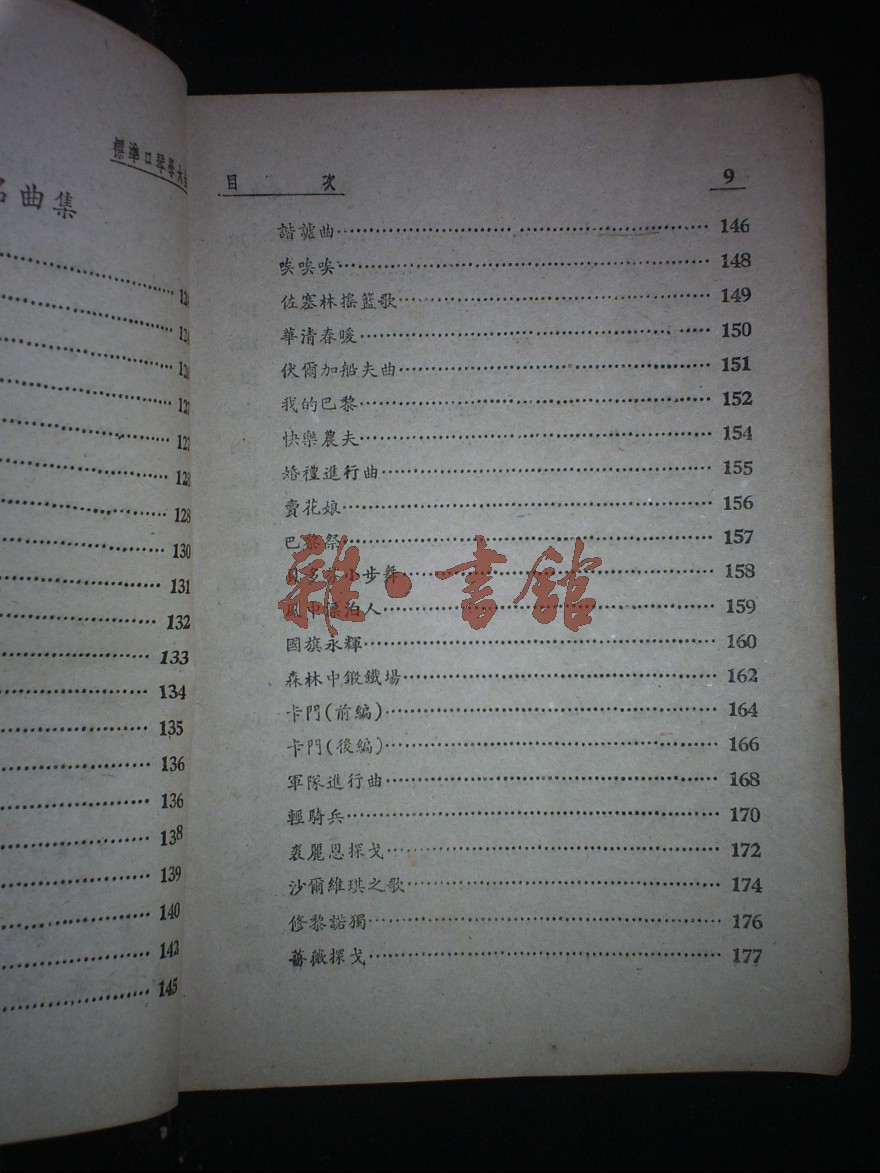 標準口琴學大
名曲集
124
126
127
127
128
128
130
131
132
133
134
135
136
136
138
139
140
142
145
目 次 9
諧謔曲 146
唉唉唉 148
佐塞林搖籃歌 149
華清春暖 150
伏爾加船夫曲 151
我的巴黎 152
快樂農夫 154
婚禮進行曲 155
賣花娘 156
巴黎祭 157
小步舞 158
中漂泊人 159
國旗永輝 160
森林中鍛鐵場 162
卡門(前編) 164
卡門(後編) 166
軍隊進行曲 168
輕騎兵 170
裘麗恩探戈 172
沙爾維琪之歌 174
修黎諾獨 176
薔薇探戈 177
雜·書館